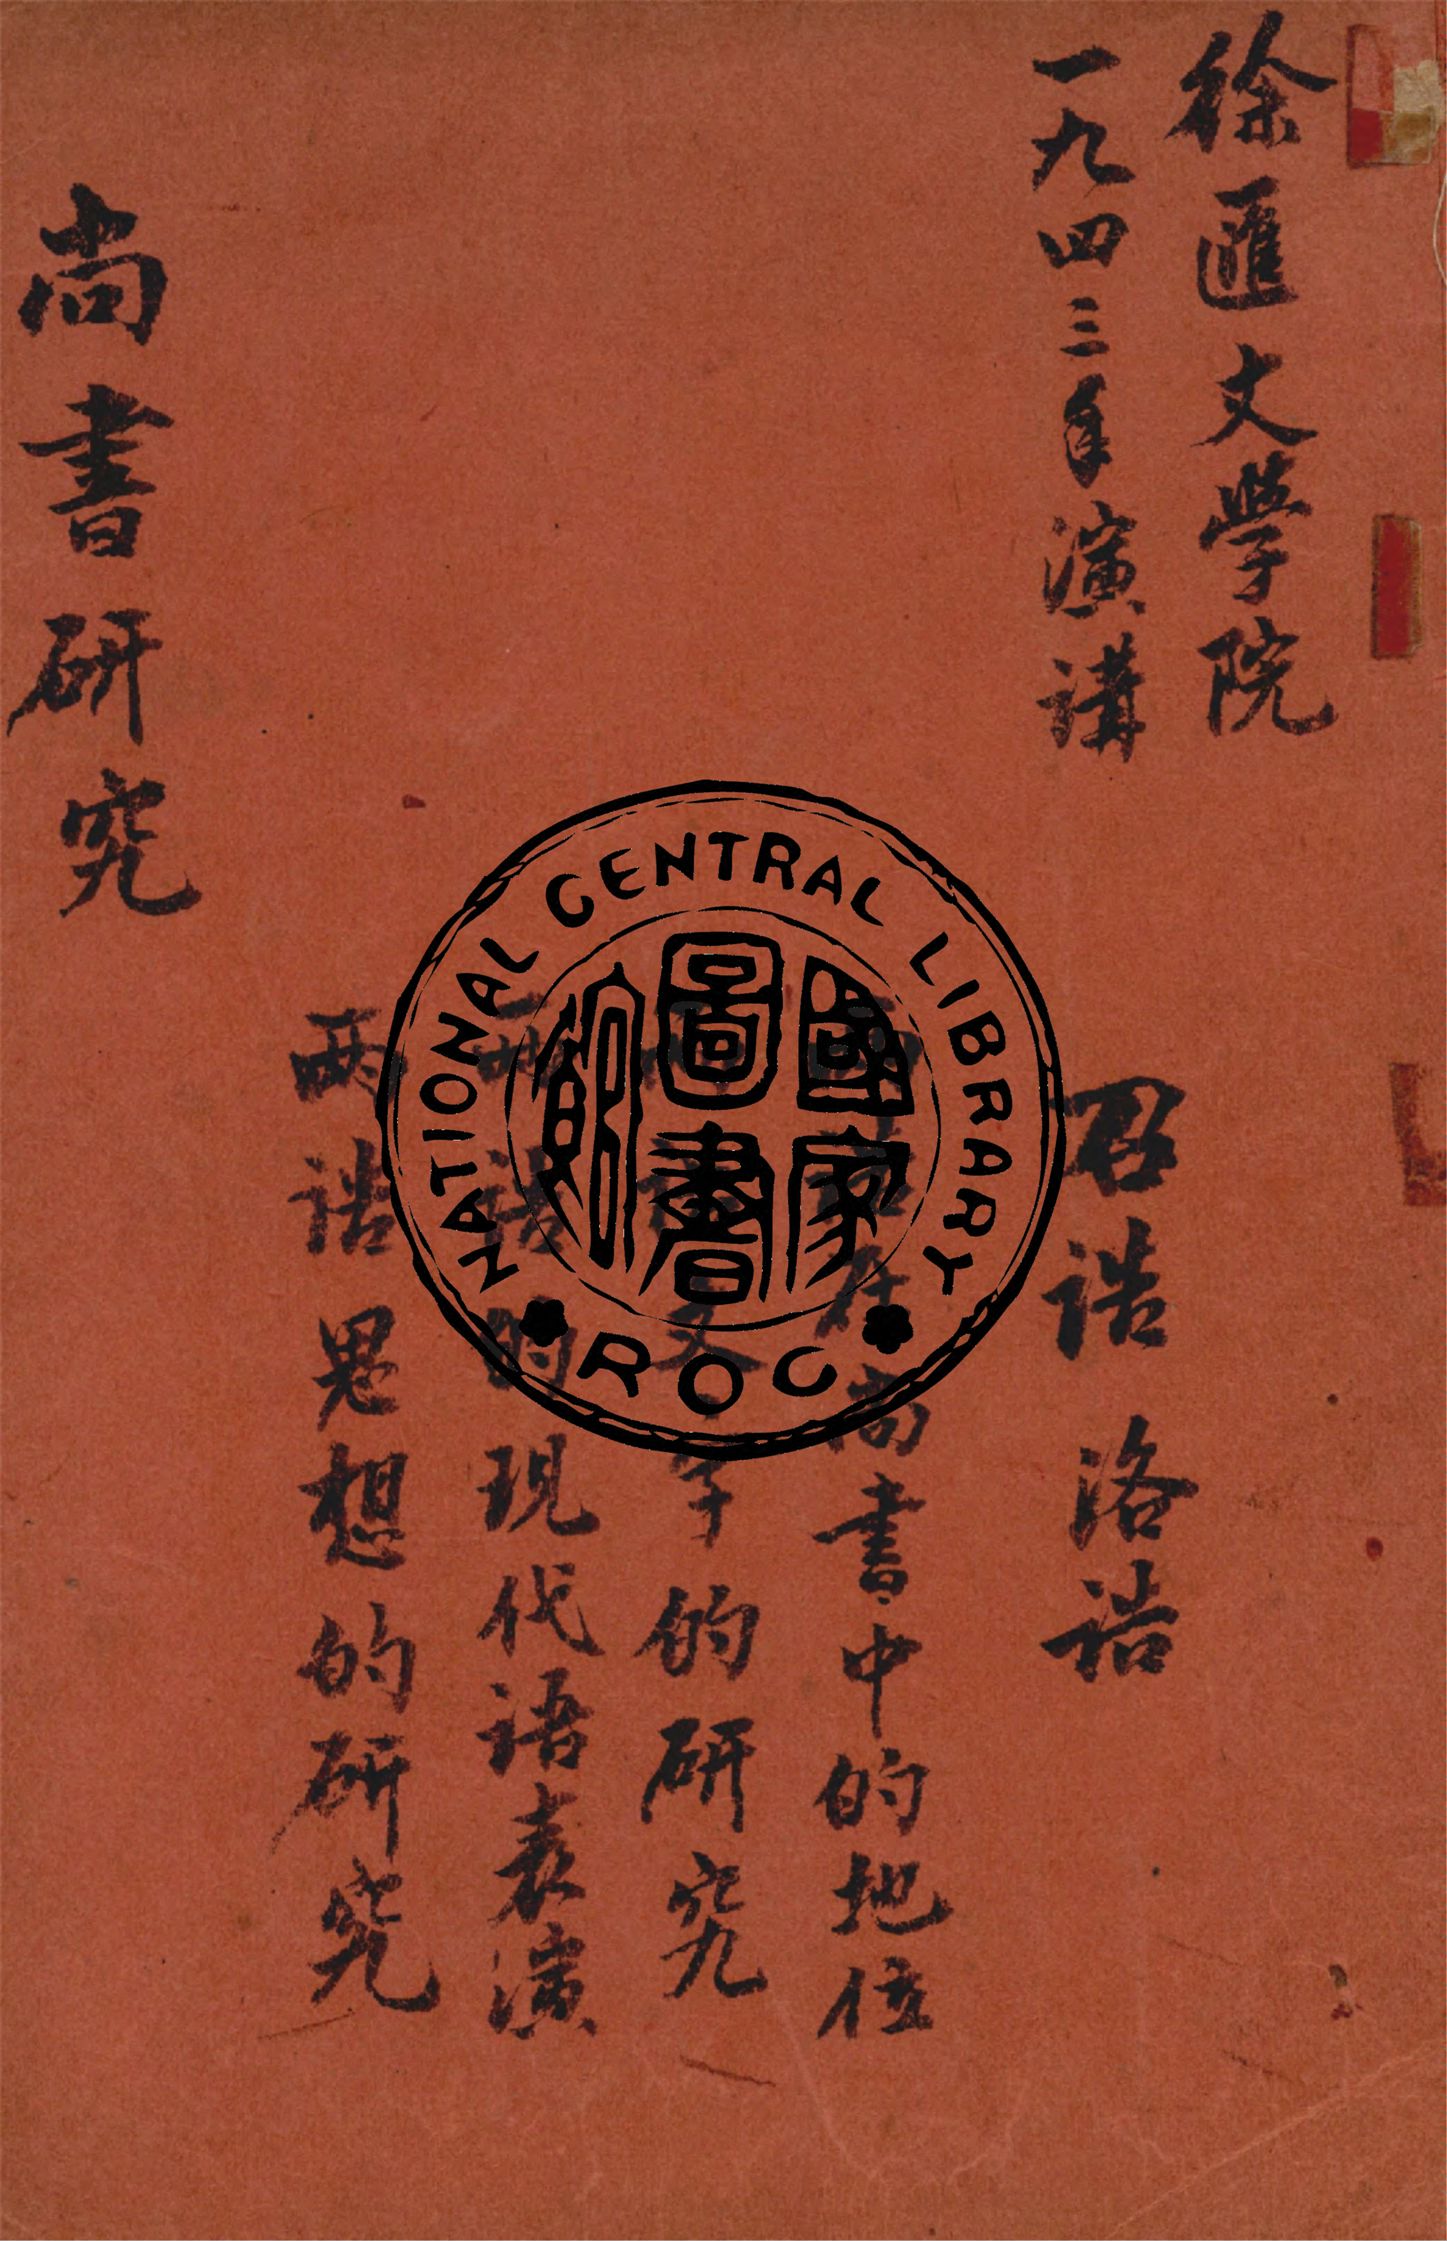 徐匯文學院
一九四三年演講
召誥 洛誥
兩誥在尚書中的地位
兩誥文字的研究
兩誥的現代语表演
兩誥思想的研究
尚書研究
NATIONAL CENTRAL LIBRARY
國家圖書館
ROC